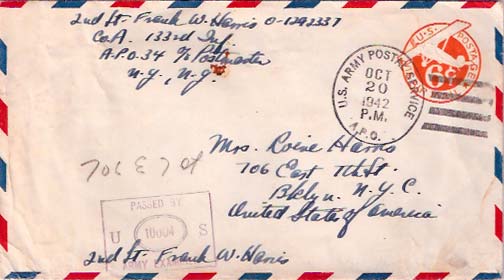 2nd Lt. Frank W. Harris O-1292337
Co A. 133rd Inf
A.P.O. 34 c/o Postmaster
N.Y., N.Y.
U.S. POSTAGE
6c
U.S. ARMY POSTAL SERVICE
OCT
20
1942
P.M.
A.P.O.
Mrs. Harris
706 East St.
Bklyn. N.Y.C.
United States of America
PASSED BY
U S
ARMY EXAMINER
2nd Lt. Frank W. Harris